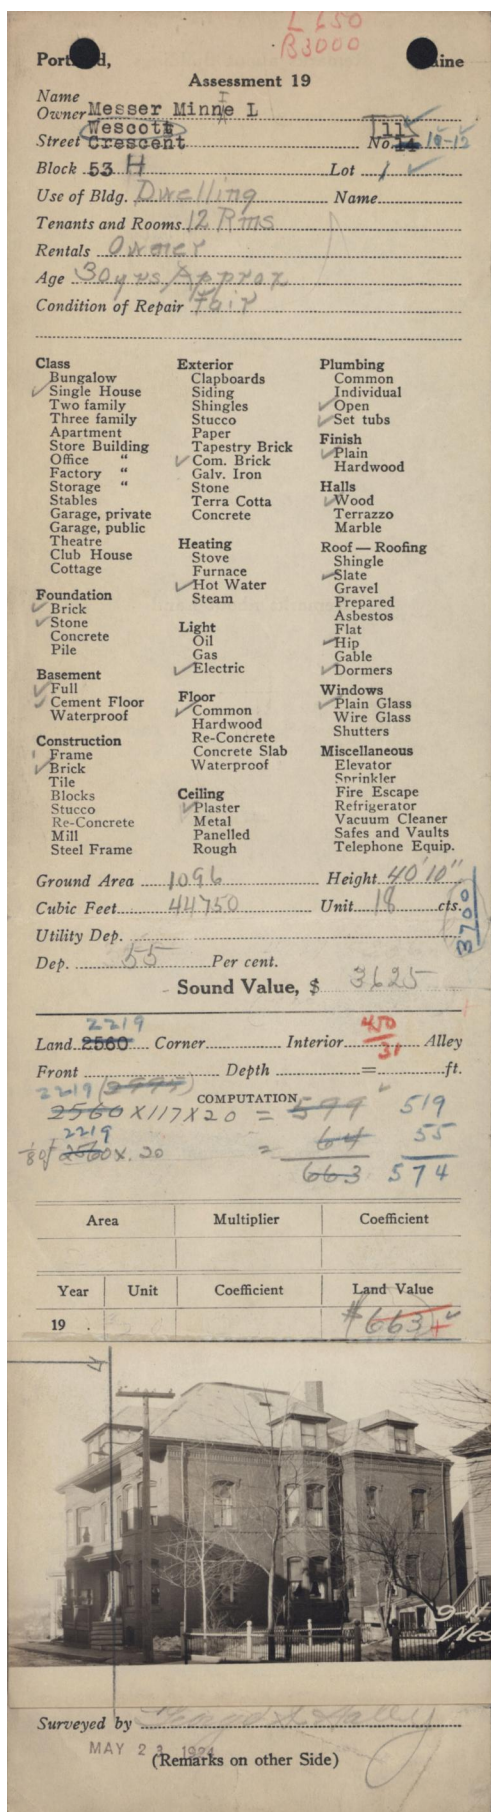 L 650
B 3000
Portland, Maine
Assessment 19
Name
Owner Messer Minnie L
Wescott
Street Crescent No. 14 11 10-12
Block 53 H Lot 1
Use of Bldg. Dwelling Name
Tenants and Rooms 12 Rms
Rentals Owner
Age 30 yrs Approx
Condition of Repair Fair
Class
Bungalow
Single House
Two family
Three family
Apartment
Store Building
Office "
Factory "
Storage "
Stables
Garage, private
Garage, public
Theatre
Club House
Cottage
Foundation
Brick
Stone
Concrete
Pile
Basement
Full
Cement Floor
Waterproof
Construction
Frame
Brick
Tile
Blocks
Stucco
Re-Concrete
Mill
Steel Frame
Exterior
Clapboards
Siding
Shingles
Stucco
Paper
Tapestry Brick
Com. Brick
Galv. Iron
Stone
Terra Cotta
Concrete
Heating
Stove
Furnace
Hot Water
Steam
Light
Oil
Gas
Electric
Floor
Common
Hardwood
Re-Concrete
Concrete Slab
Waterproof
Ceiling
Plaster
Metal
Panelled
Rough
Plumbing
Common
Individual
Open
Set tubs
Finish
Plain
Hardwood
Halls
Wood
Terrazzo
Marble
Roof — Roofing
Shingle
Slate
Gravel
Prepared
Asbestos
Flat
Hip
Gable
Dormers
Windows
Plain Glass
Wire Glass
Shutters
Miscellaneous
Elevator
Sprinkler
Fire Escape
Refrigerator
Vacuum Cleaner
Safes and Vaults
Telephone Equip.
Ground Area 1096 Height 40'10"
Cubic Feet 44750 Unit 18 cts.
3700
Utility Dep.
Dep. 55 Per cent.
Sound Value, $ 3625
2219 450
Land 2560 Corner Interior 31 Alley
Front Depth = ft.
2219 COMPUTATION
2560 X 117 X 20 = 599 519
2219 64 55
1/8 of 2560 X .20 = 663 574
Area Multiplier Coefficient
Year Unit Coefficient Land Value
19 $663
9-11
Wes
Surveyed by
MAY 23 1924
(Remarks on other Side)